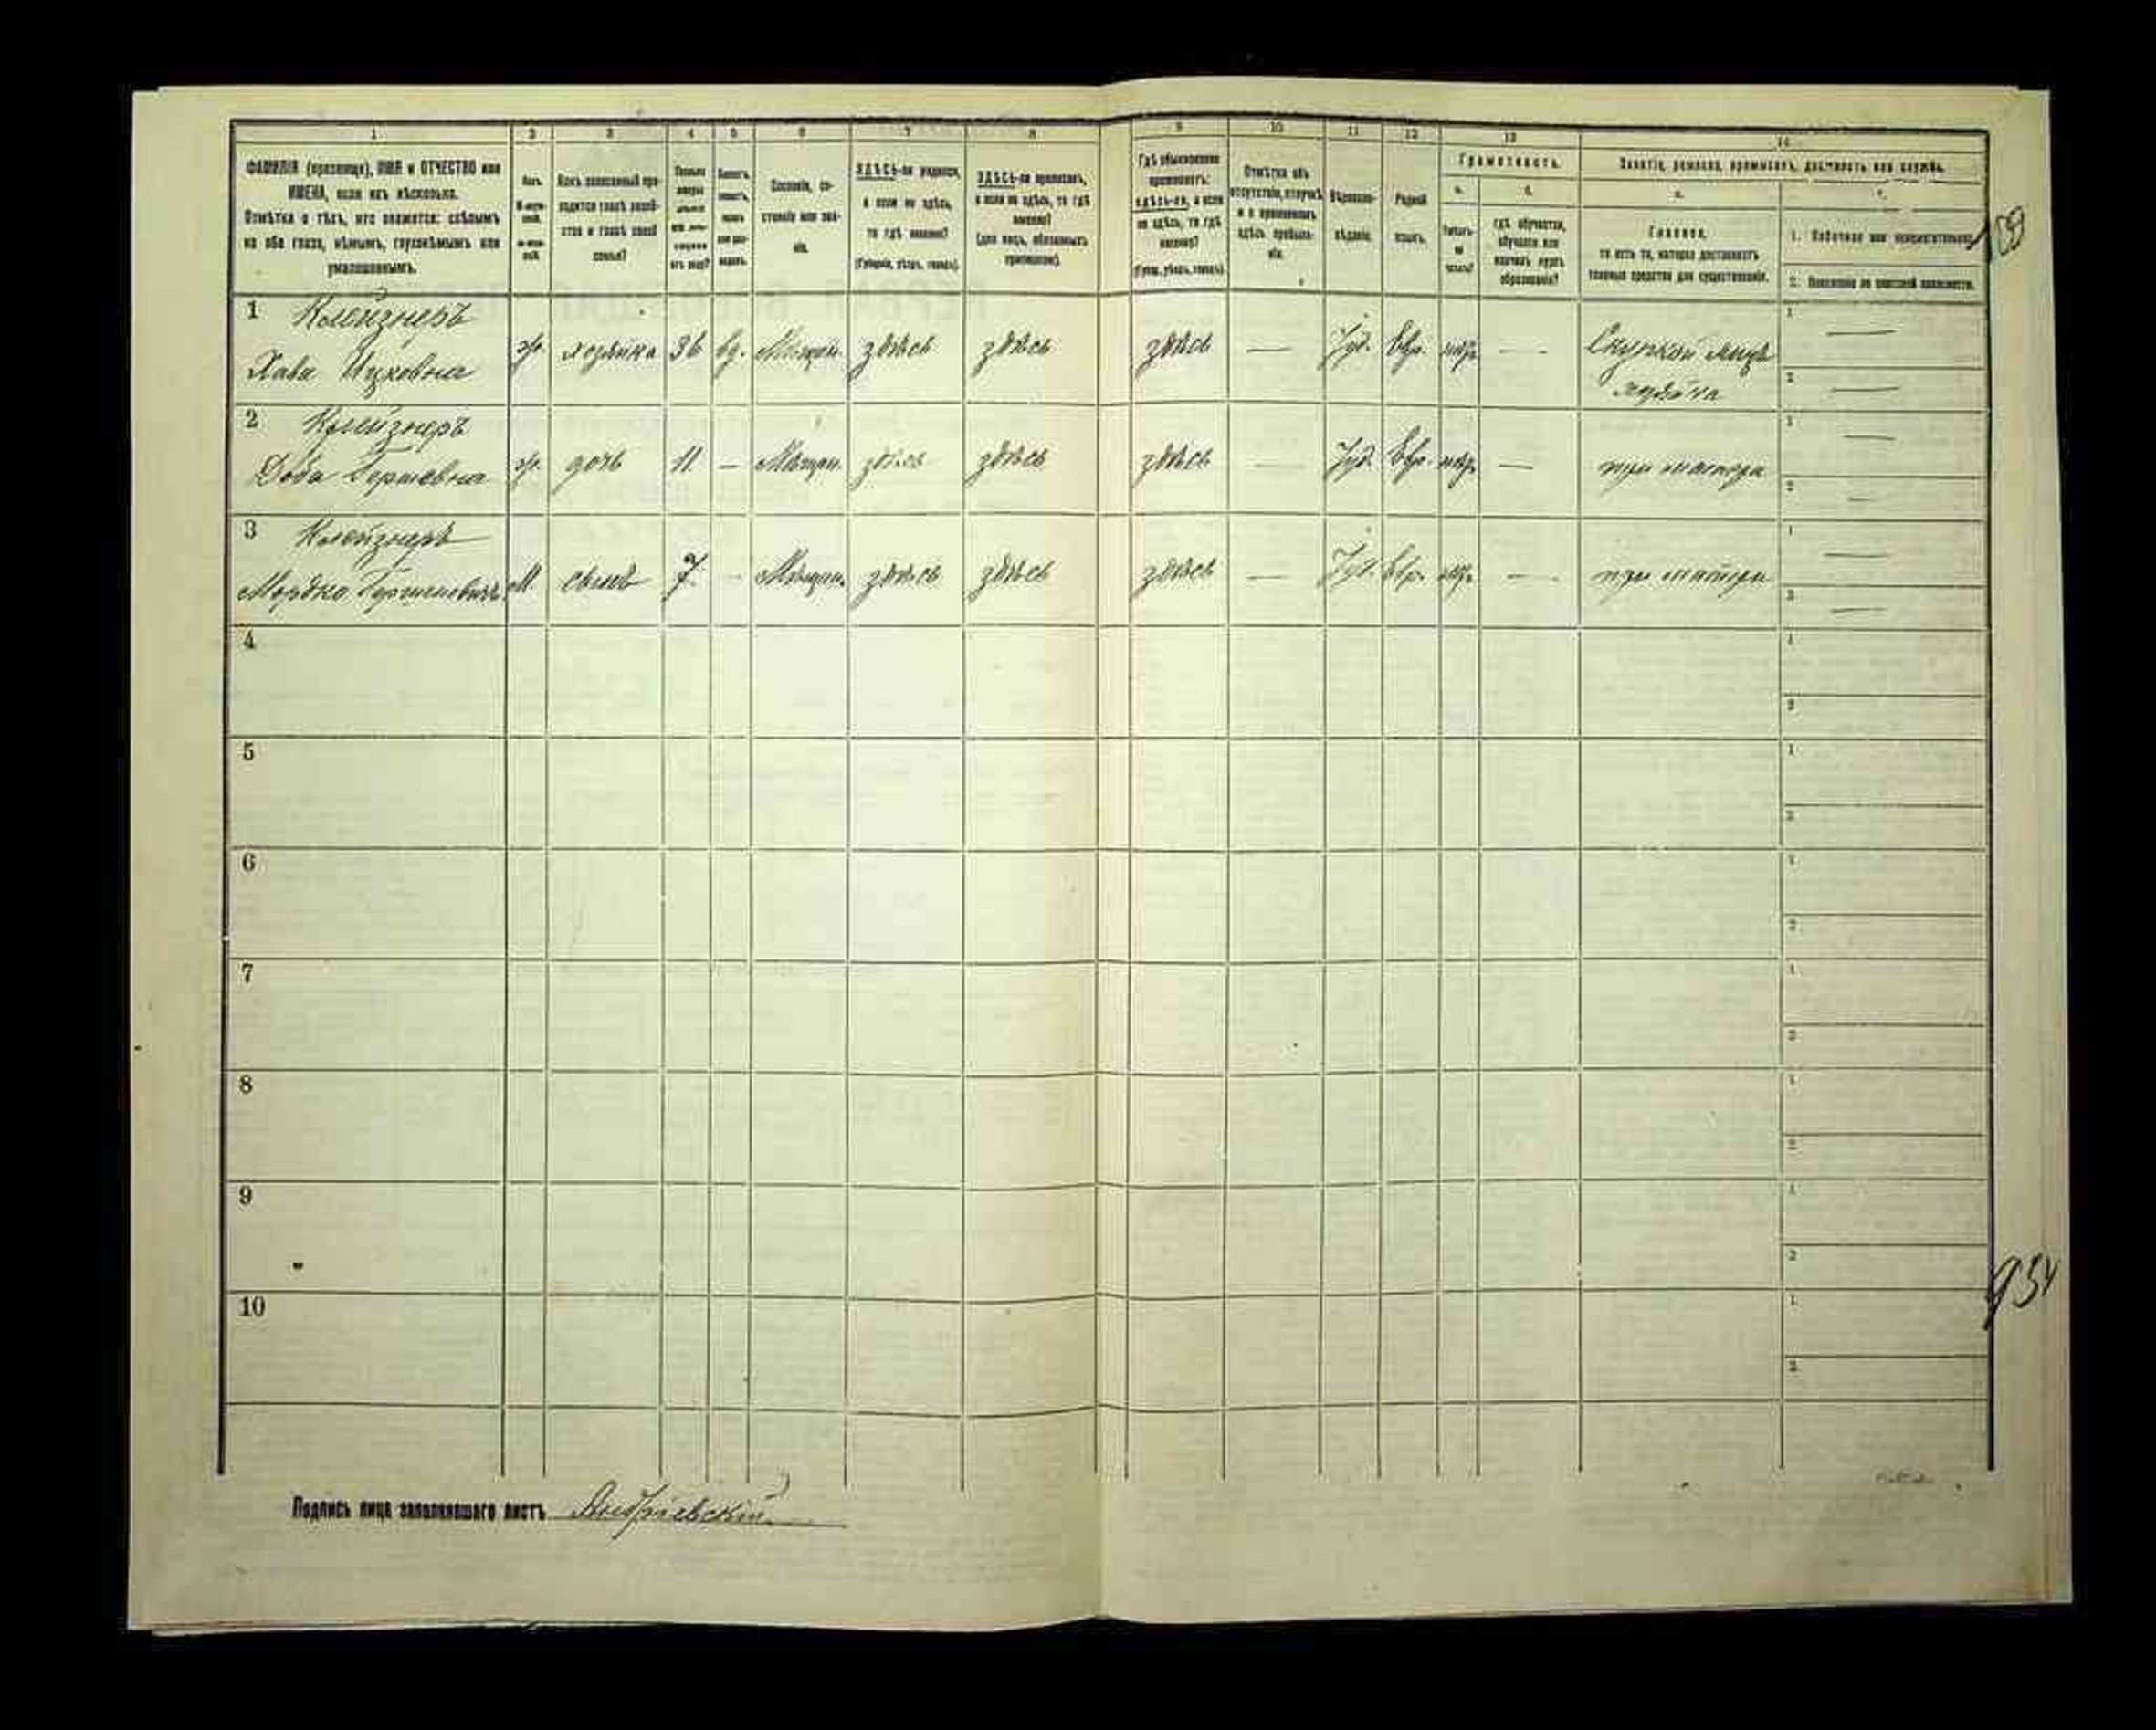 1 2 3 4 5 6 7 8 9 10 11 12 13 14
ФАМИЛІЯ (прозвище), ИМЯ и ОТЧЕСТВО или
ИМЕНА, если ихъ нѣсколько.
Отмѣтка о тѣхъ, кто окажется: слѣпымъ
на оба глаза, нѣмымъ, глухонѣмымъ или
умалишеннымъ.
Полъ.
Какъ записанный при-
ходится главѣ хозяй-
ства и главѣ своей
семьи?
Сословіе, со-
стояніе или зва-
ніе.
ЗДѢСЬ-ли родился,
а если не здѣсь,
то гдѣ именно?
(Губернія, уѣздъ, городъ).
ЗДѢСЬ-ли приписанъ,
а если не здѣсь, то гдѣ
именно?
(для лицъ, обязанныхъ
припискою).
Гдѣ обыкновенно
проживаетъ:
здѣсь-ли, а если
не здѣсь, то гдѣ
именно?
(Губер., уѣздъ, городъ).
Отмѣтка объ
отсутствіи, отлучкѣ
и о временномъ
здѣсь пребыва-
ніи.
Вѣроиспо-
вѣданіе.
Родной
языкъ.
Грамотность.
а. б.
гдѣ обучается,
обучался или
кончилъ курсъ
образованія?
Занятіе, ремесло, промыселъ, должность или служба.
Главное,
то есть то, которое доставляетъ
главныя средства для существованія.
1. Побочное или вспомогательное.
2. Положеніе по воинской повинности.
1 Клейзнеръ
Хава Ицковна
ж. хозяйка 36 вд. Мѣщан. здѣсь здѣсь здѣсь — Іуд. Евр. — —
2 Клейзнеръ
Доба Гершевна
ж. дочь 11 — Мѣщан. здѣсь здѣсь здѣсь — Іуд. Евр. — при матери —
3 Клейзнеръ
Мордко Гершковичъ
М. сынъ 7 — Мѣщан. здѣсь здѣсь здѣсь — Іуд. Евр. — при матери —
4
5
6
7
8
9
10
954
Подпись лица заполнявшаго листъ Андріевскій